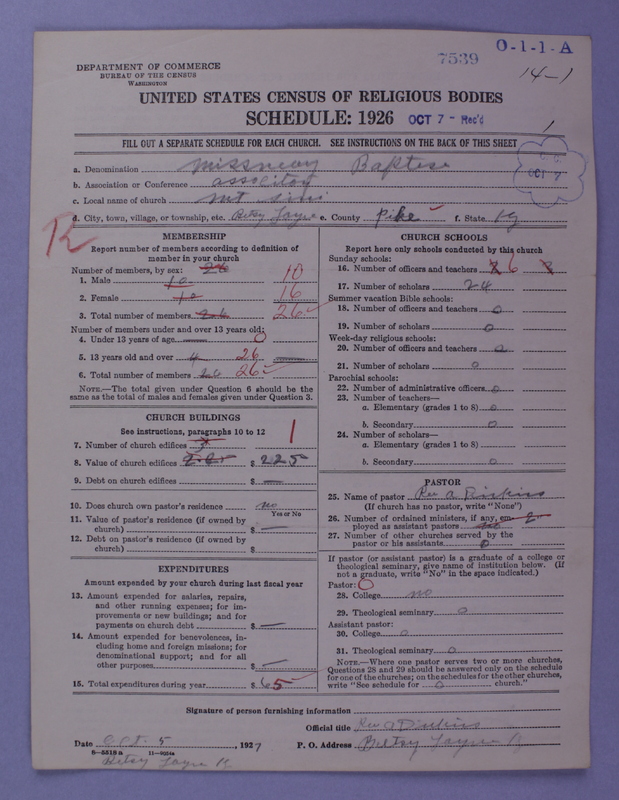 7539
O-1-1-A
14-1
DEPARTMENT OF COMMERCE
BUREAU OF THE CENSUS
WASHINGTON
UNITED STATES CENSUS OF RELIGIOUS BODIES
SCHEDULE: 1926 OCT 7 - Rec'd
FILL OUT A SEPARATE SCHEDULE FOR EACH CHURCH. SEE INSTRUCTIONS ON THE BACK OF THIS SHEET
OCT 7
a. Denomination Missneary Baptese
b. Association or Conference
c. Local name of church mt
d. City, town, village, or township, etc. Betsy Layne e. County Pike f. State Ky
MEMBERSHIP
Report number of members according to definition of
member in your church
Number of members, by sex:
1. Male 10 10
2. Female 16
3. Total number of members 26 26
Number of members under and over 13 years old:
4. Under 13 years of age 0
5. 13 years old and over 26
6. Total number of members 26 26
NOTE.—The total given under Question 6 should be the
same as the total of males and females given under Question 3.
CHURCH BUILDINGS
See instructions, paragraphs 10 to 12
7. Number of church edifices 1
8. Value of church edifices $ 225
9. Debt on church edifices $ —
10. Does church own pastor's residence no
Yes or No
11. Value of pastor's residence (if owned by
church) $ —
12. Debt on pastor's residence (if owned by
church) $
EXPENDITURES
Amount expended by your church during last fiscal year
13. Amount expended for salaries, repairs,
and other running expenses; for im-
provements or new buildings; and for
payments on church debt $ —
14. Amount expended for benevolences, in-
cluding home and foreign missions; for
denominational support; and for all
other purposes $ —
15. Total expenditures during year $ 65
CHURCH SCHOOLS
Report here only schools conducted by this church
Sunday schools:
16. Number of officers and teachers 6
17. Number of scholars 24
Summer vacation Bible schools:
18. Number of officers and teachers 0
19. Number of scholars 0
Week-day religious schools:
20. Number of officers and teachers 0
21. Number of scholars 0
Parochial schools:
22. Number of administrative officers 0
23. Number of teachers—
a. Elementary (grades 1 to 8) 0
b. Secondary 0
24. Number of scholars—
a. Elementary (grades 1 to 8)
b. Secondary 0
PASTOR
25. Name of pastor Rev a
(If church has no pastor, write "None")
26. Number of ordained ministers, if any, em-
ployed as assistant pastors
27. Number of other churches served by the
pastor or his assistants 0
If pastor (or assistant pastor) is a graduate of a college or
theological seminary, give name of institution below. (If
not a graduate, write "No" in the space indicated.)
Pastor: 0
28. College no
29. Theological seminary 0
Assistant pastor:
30. College 0
31. Theological seminary 0
NOTE.—Where one pastor serves two or more churches,
Questions 28 and 29 should be answered only on the schedule
for one of the churches; on the schedules for the other churches,
write "See schedule for 0 church."
Signature of person furnishing information
Official title Rev a
Date 5, 1927 P. O. Address Betsy Layne K
8-5518 a
Betsy Layne K